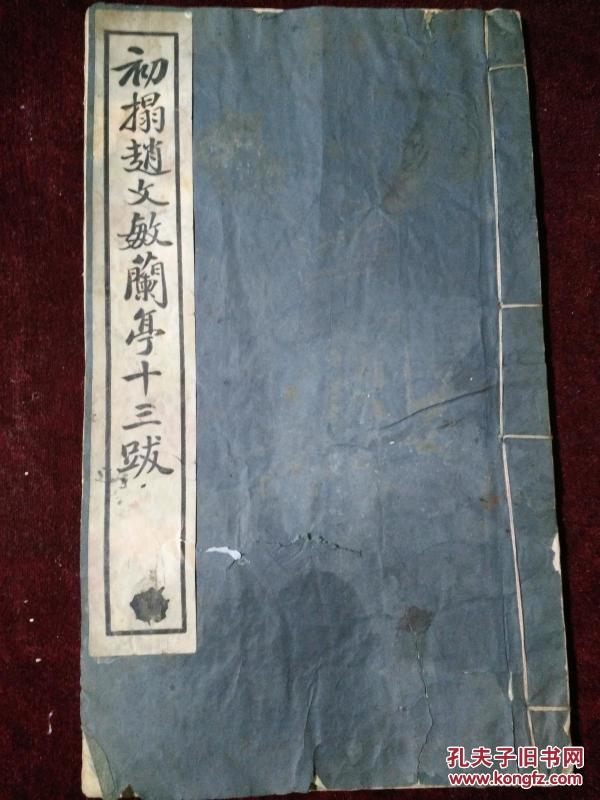 初搨趙文敏蘭亭十三跋
孔夫子旧书网
www.kongfz.com